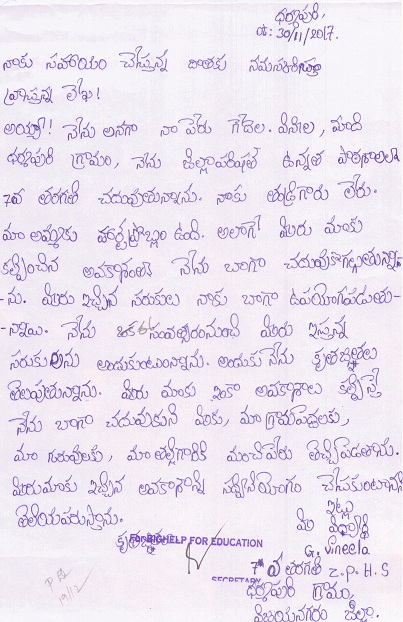 ధర్మాపురి,
తే: 30/11/2017.
నాకు సహాయం చేస్తున్న దాతకు నమస్కరిస్తూ
వ్రాస్తున్న లేఖ!
అయ్యా!! నేను అనగా నా పేరు గేదెల. వినీల, మాది
ధర్మాపురి గ్రామం, నేను జిల్లాపరిషత్ ఉన్నత పాఠశాలలో
7వ తరగతి చదువుతున్నాను. నాకు తండ్రిగారు లేరు.
మా అమ్మకు హార్ట్ప్రాబ్లం ఉంది. అలాగే మీరు మాకు
కల్పించిన అవకాశంతో నేను బాగా చదువుకొగల్గుతున్నా-
-ను. మీరు ఇచ్చిన సరుకులు నాకు బాగా ఉపయోగపడుతు-
-న్నాయి. నేను ఒక సంవత్సరంనుండి మీరు ఇస్తున్న
సరుకులను అందుకుంటున్నాను. అందుకు నేను కృతజ్ఞతలు
తెలుపుతున్నాను. మీరు మాకు ఇంకా అవకాశాలు కల్పిస్తే
నేను బాగా చదువుకుని మీకు, మా గ్రామపెద్దలకు,
మా గురువులకు, మా తల్లిగారికి మంచిపేరు తెచ్చిపెడతాను.
మీరుమాకు ఇచ్చిన అవకాశాన్ని సద్వినియోగం చేసుకుంటానని
తెలియపరుస్తాను.
ఇట్లు
మీ విద్యార్థి
కృతజ్ఞతలు
FOR BIGHELP FOR EDUCATION
G. Vineela
SECRETARY
7వ తరగతి Z.P.H.S
ధర్మాపురి గ్రామం,
విజయనగరం జిల్లా.